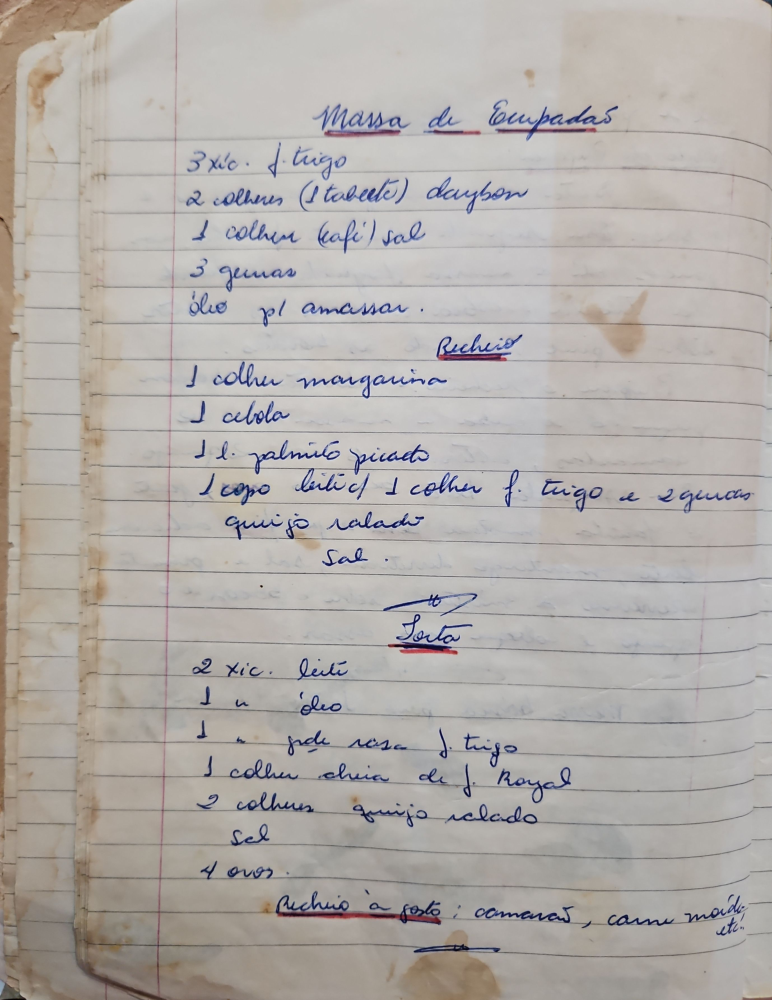 Massa de Empadão
3 xíc. f. trigo
2 colheres (1 tablete) claybon
1 colher (café) sal
3 gemas
óleo p/ amassar.
Recheio
1 colher margarina
1 cebola
1 l. palmito picado
1 copo leite c/ 1 colher f. trigo e 2 gemas
queijo ralado
sal.
Torta
2 xic. leite
1 " óleo
1 " gde rasa f. trigo
1 colher cheia de f. Royal
2 colheres queijo ralado
Sal
4 ovos.
Recheio à gosto: camarão, carne moída,
etc.